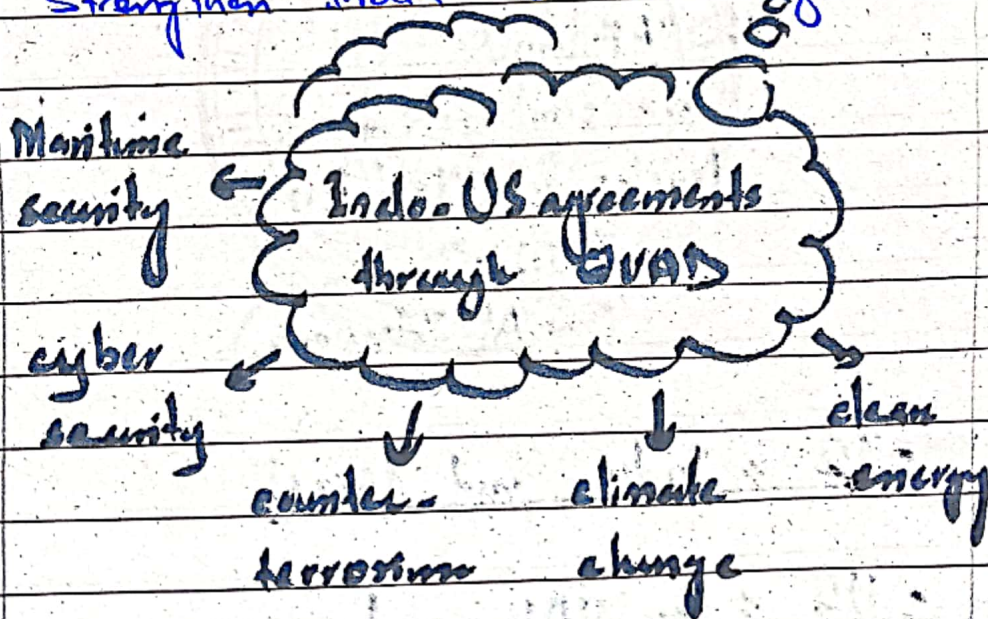 Strengthen
Maritime
security
Indo-US agreements
through QUAD
cyber
security
counter-
terrorism
climate
change
clean
energy